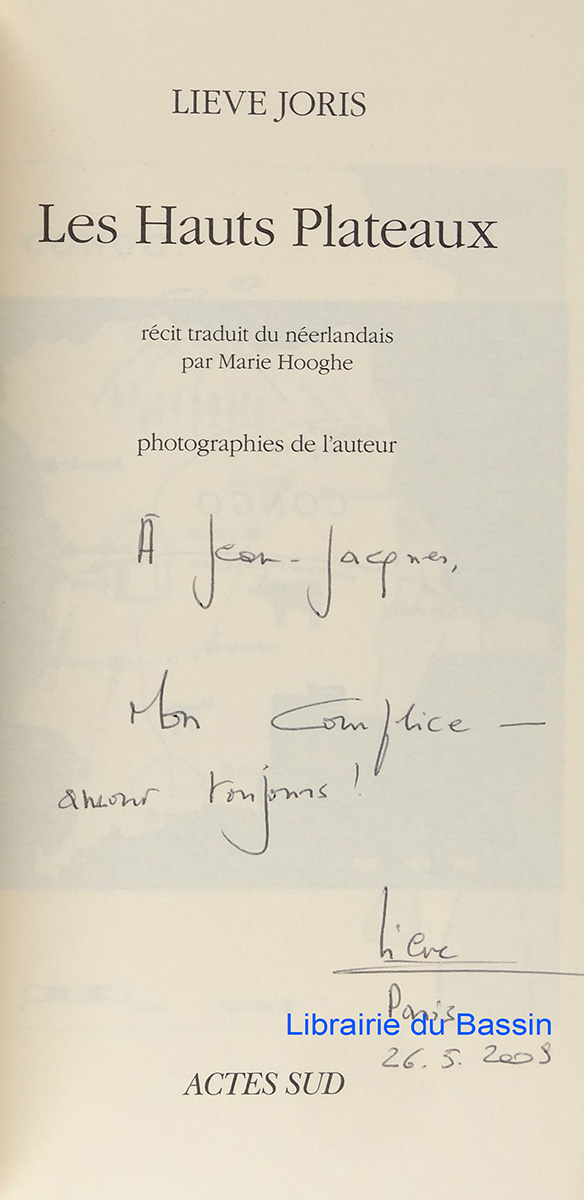 LIEVE JORIS
Les Hauts Plateaux
récit traduit du néerlandais
par Marie Hooghe
photographies de l'auteur
À Jean-Jacques,
Mon Complice —
amour toujours !
Lieve
Paris
Librairie du Bassin
26.5.2009
ACTES SUD